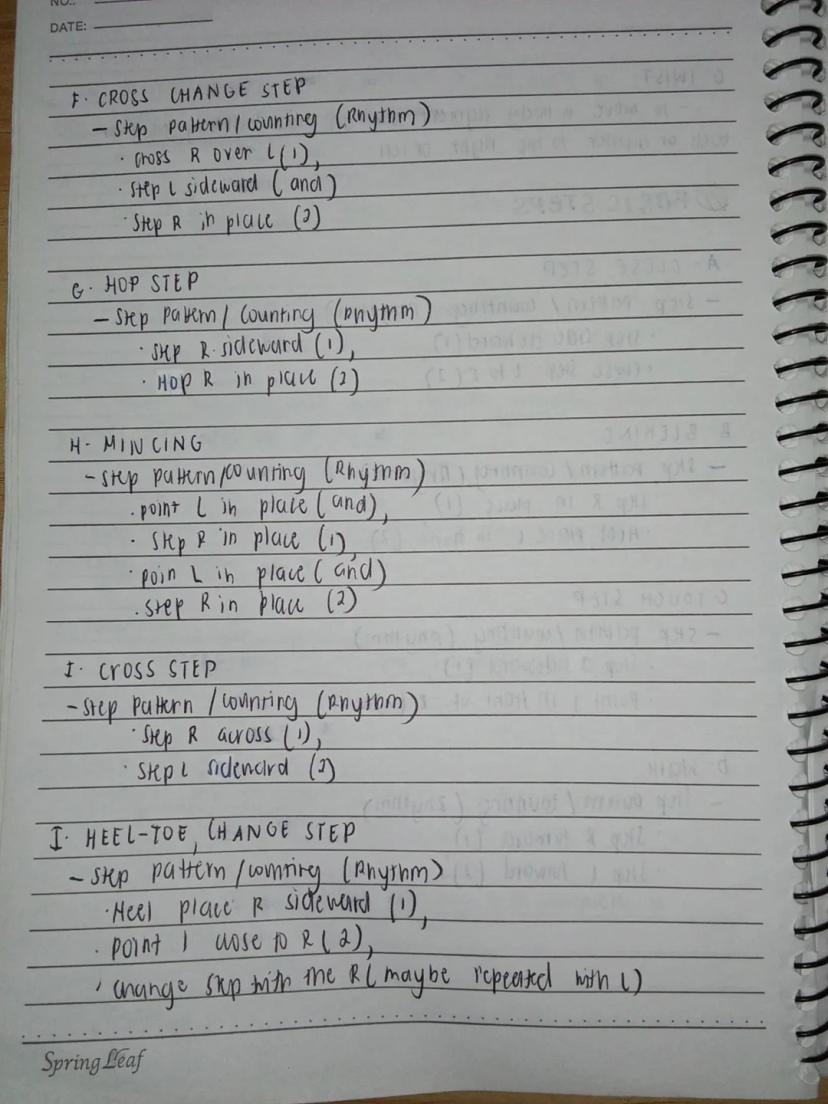 NO.:
DATE:
F. CROSS CHANGE STEP
- Step pattern/counting (Rhythm)
· Cross R over L (1),
· Step L sideward (and)
· Step R in place (2)
G. HOP STEP
- Step pattern/counting (Rhythm)
· Step R sideward (1),
· HOP R in place (2)
H. MINCING
- Step pattern/counting (Rhythm)
· point L in place (and),
· Step R in place (1),
· poin L in place (and)
· step R in place (2)
I. CROSS STEP
- Step pattern/counting (Rhythm)
· Step R across (1),
· Step L sideward (2)
I. HEEL-TOE, CHANGE STEP
- Step pattern/counting (Rhythm)
· Heel place R sideward (1),
· point l close to R (2),
· change step with the R (maybe repeated with L)
Spring Leaf